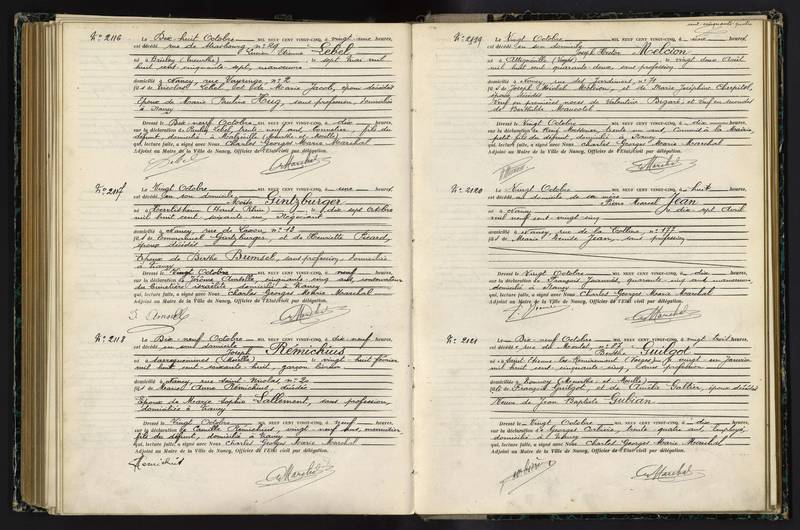 cent cinquante quatre
No 2116 Le Dix huit Octobre MIL NEUF CENT VINGT-CINQ, à vingt une heures,
est décédé rue de Strasbourg no 29
Etienne Lebel
né à , le sept mai mil
huit cent cinquante sept, manoeuvre
domicilié à Nancy, rue Vayringe, no 2
fils de Nicolas Lebel et de Marie Jacob, époux décédés
Epoux de Marie Pauline Hug, sans profession, domiciliée
à Nancy
Dressé le Dix neuf Octobre MIL NEUF CENT VINGT-CINQ, à dix heures,
sur la déclaration de Lebel, trente neuf ans, fils du
défunt, domicilié à (Meurthe et Moselle)
qui, lecture faite, a signé avec Nous Charles Georges Marie Maréchal
Adjoint au Maire de la Ville de Nancy, Officier de l'Etat civil par délégation.
Lebel GMarchal
No 2117 Le Vingt Octobre MIL NEUF CENT VINGT-CINQ, à une heures,
est décédé en son domicile
Moïse Gintzburger
né à (Haut Rhin), le dix sept Octobre
mil huit cent soixante un, Négociant
domicilié à Nancy, rue de Laxou, no 18
fils de Gintzburger, et de Henriette Picard,
époux décédés
Epoux de Berthe Brimsel, sans profession, domiciliée
à Nancy
Dressé le Vingt Octobre MIL NEUF CENT VINGT-CINQ, à neuf heures,
sur la déclaration de Jérôme, cinquante cinq ans, conservateur
du cimetière israélite, domicilié à Nancy
qui, lecture faite, a signé avec Nous Charles Georges Marie Maréchal
Adjoint au Maire de la Ville de Nancy, Officier de l'Etat civil par délégation.
GMarchal
No 2118 Le Dix neuf Octobre MIL NEUF CENT VINGT-CINQ, à dix neuf heures,
est décédé en son domicile
Joseph Rémichius
né à Sarreguemines (Moselle), le vingt huit février
mil huit cent soixante huit, garçon
domicilié à Nancy, rue Saint Nicolas, no 20
fils de Rémichius, décédés
Epoux de Marie Sophie Lallement, sans profession,
domiciliée à Nancy
Dressé le Vingt Octobre MIL NEUF CENT VINGT-CINQ, à neuf heures,
sur la déclaration de Camille Rémichius, vingt neuf ans,
fils du défunt, domicilié à Nancy
qui, lecture faite, a signé avec Nous Charles Georges Marie Maréchal
Adjoint au Maire de la Ville de Nancy, Officier de l'Etat civil par délégation.
GMarchal
No 2119 Le Vingt Octobre MIL NEUF CENT VINGT-CINQ, à une heures,
est décédé en son domicile
Joseph Melcion
né à (Vosges), le vingt deux Avril
mil huit cent quarante deux, sans profession
domicilié à Nancy, rue des Jardiniers, no
fils de Joseph Melcion, et de Marie Joséphine Cherpitel,
époux décédés
Veuf en premières noces de Valentine et veuf en secondes
de Berthilde
Dressé le Vingt Octobre MIL NEUF CENT VINGT-CINQ, à dix heures,
sur la déclaration de trente un ans, Commis à la Mairie
petit fils du défunt, domicilié à Nancy
qui, lecture faite, a signé avec Nous Charles Georges Marie Maréchal
Adjoint au Maire de la Ville de Nancy, Officier de l'Etat civil par délégation.
GMarchal
No 2120 Le Vingt Octobre MIL NEUF CENT VINGT-CINQ, à huit heures,
est décédé au domicile de sa mère
Pierre Marcel Jean
né à Nancy, le dix sept Avril
mil neuf cent vingt cinq
domicilié à Nancy, rue de la Colline, no 177
fils de Marie Jean, sans profession
Dressé le Vingt Octobre MIL NEUF CENT VINGT-CINQ, à dix heures,
sur la déclaration de François, cinquante cinq ans,
domicilié à Nancy
qui, lecture faite, a signé avec Nous Charles Georges Marie Maréchal
Adjoint au Maire de la Ville de Nancy, Officier de l'Etat civil par délégation.
GMarchal
No 2121 Le Dix neuf Octobre MIL NEUF CENT VINGT-CINQ, à vingt trois heures,
est décédée rue de
Berthe Guilgot
née à Saint Etienne les Remiremont (Vosges), le vingt six Janvier
mil huit cent cinquante cinq, sans profession
domiciliée à (Meurthe et Moselle)
fille de François Guilgot, et de Galtier, époux décédés
Veuve de Jean Baptiste Gubian
Dressé le Vingt Octobre MIL NEUF CENT VINGT-CINQ, à dix heures,
sur la déclaration de Georges, trente quatre ans, employé,
domicilié à Nancy
qui, lecture faite, a signé avec Nous Charles Georges Marie Maréchal
Adjoint au Maire de la Ville de Nancy, Officier de l'Etat civil par délégation.
GMarchal